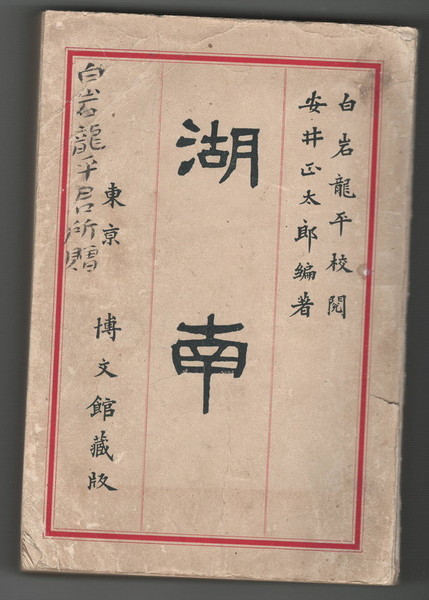 白岩龍平校閲
安井正太郎編著
湖南
東京
博文館藏版
白岩龍平君所贈